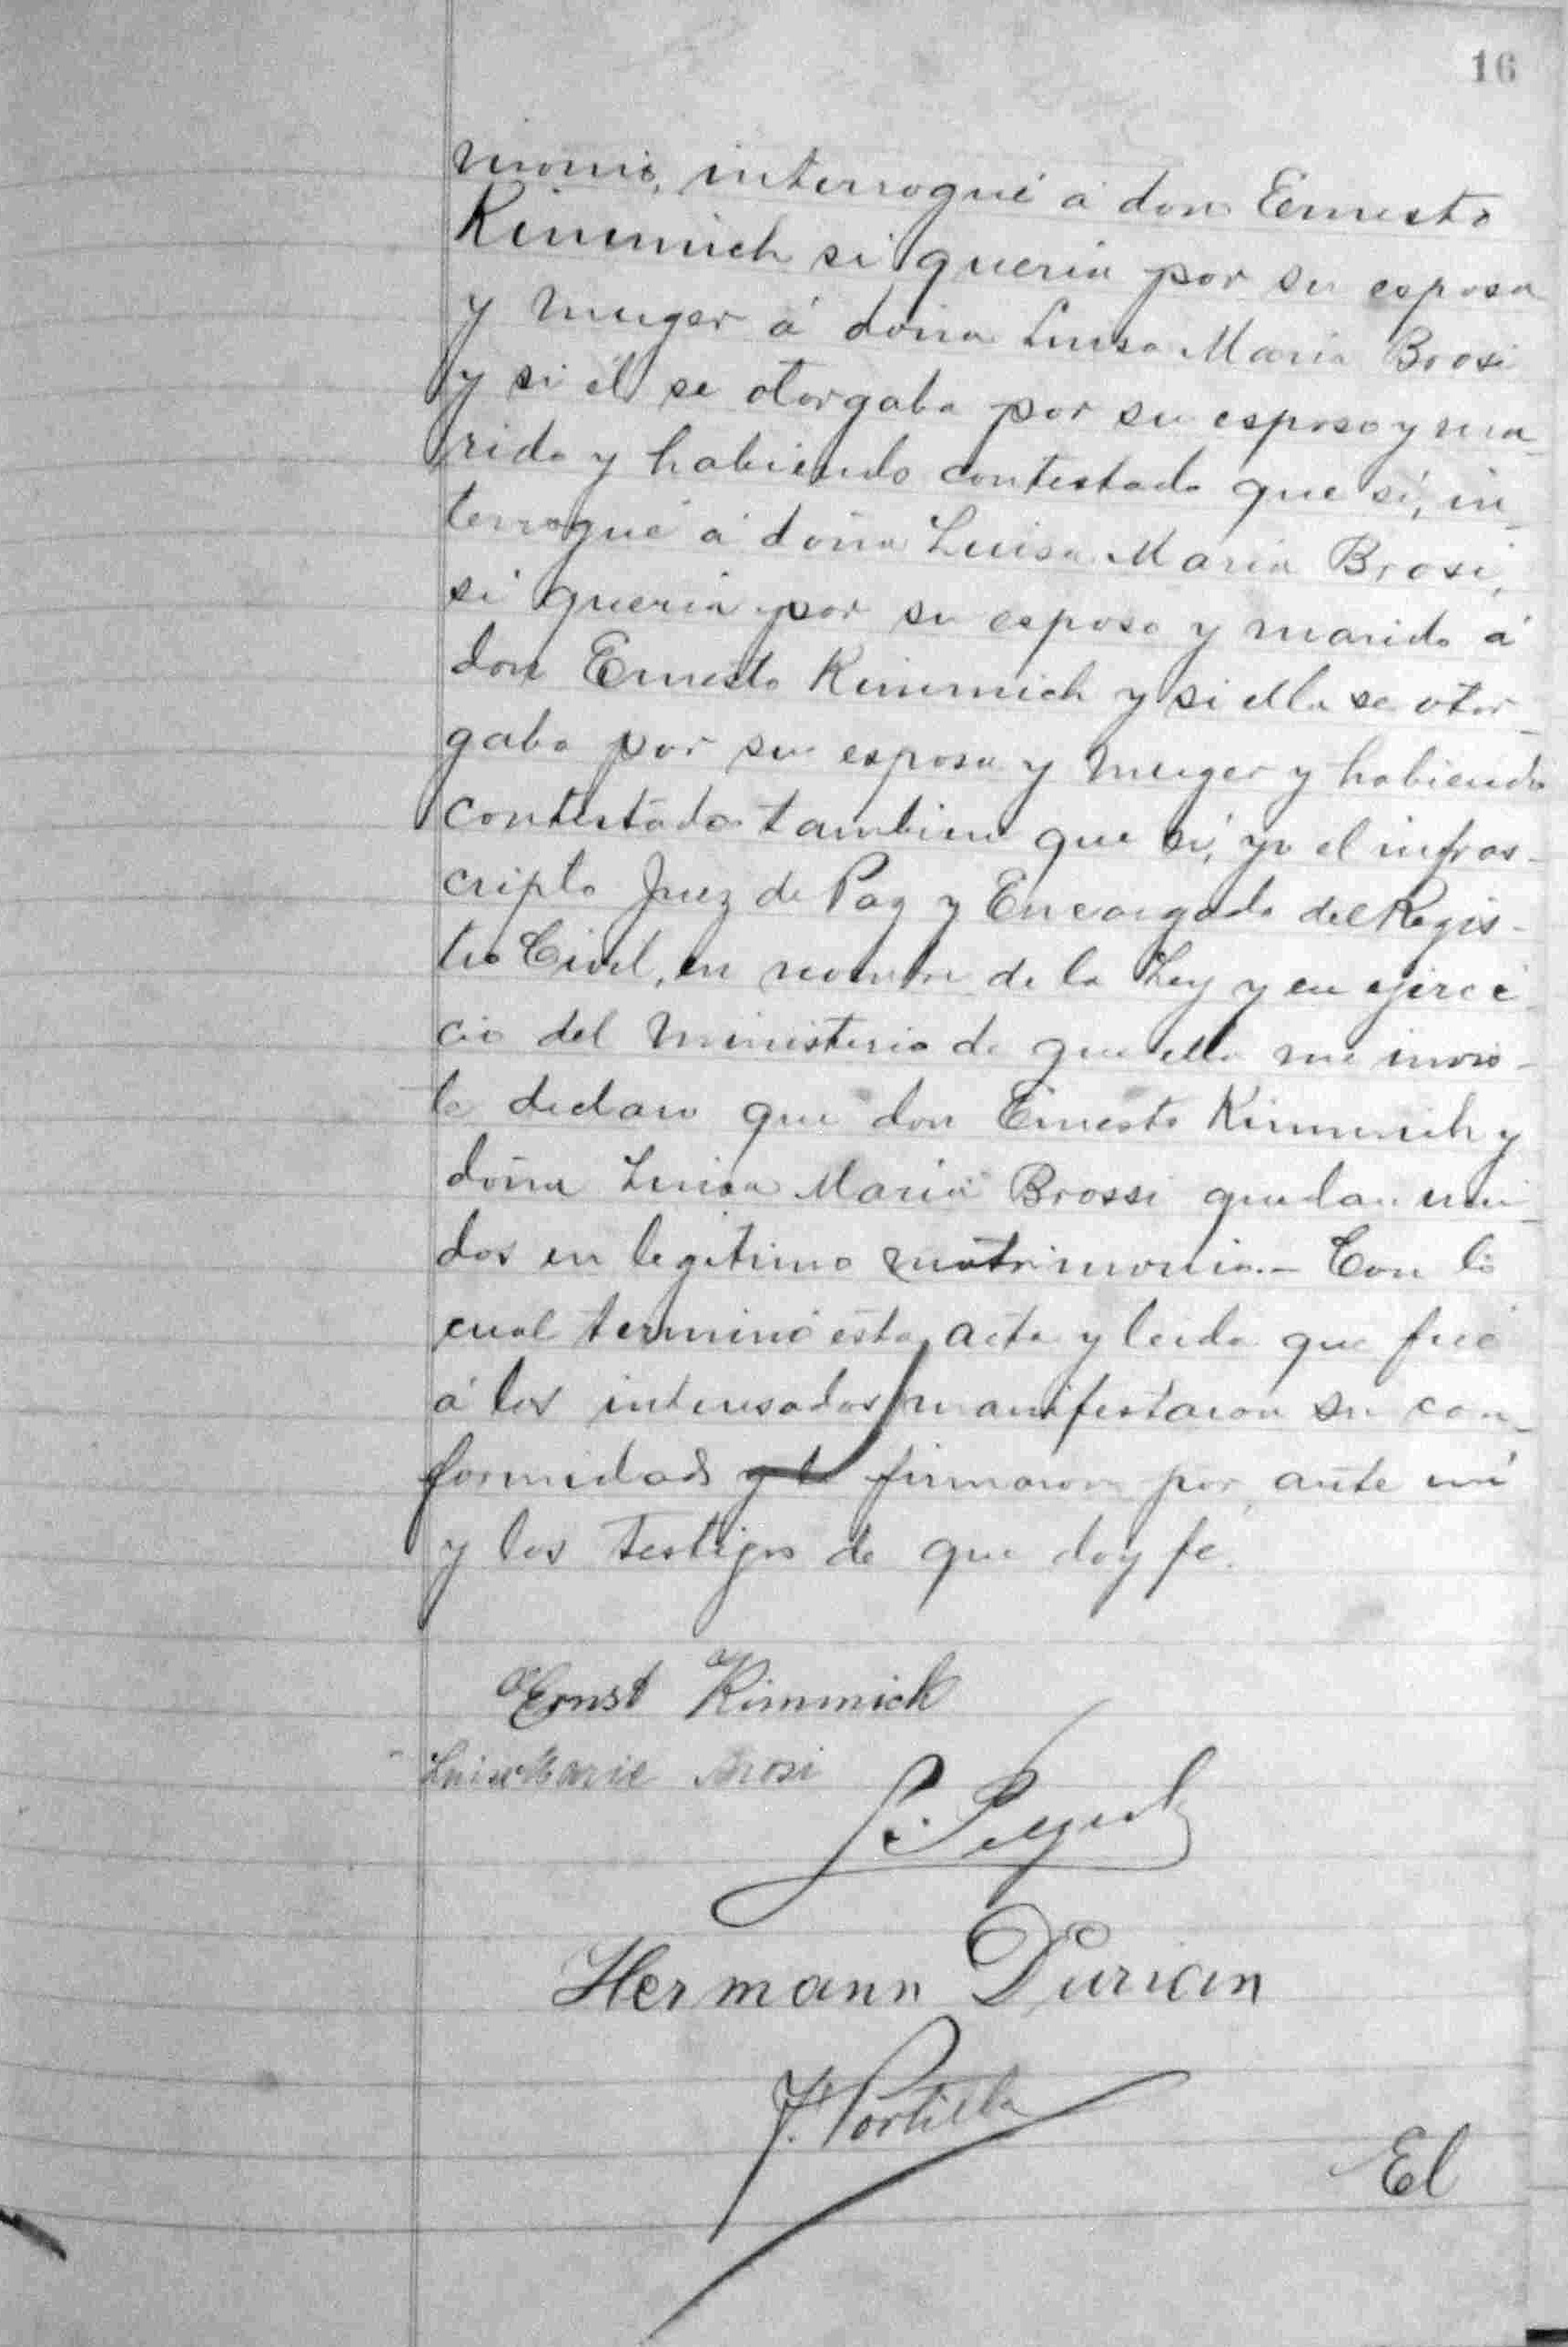 16
monio, interrogué á don Ernesto
Kimmich si queria por su esposa
y muger á doña Luisa Maria Brosi
y si él se otorgaba por su esposo y ma-
rido y habiendo contestado que sí, in-
terrogué á doña Luisa Maria Brosi,
si queria por su esposo y marido á
don Ernesto Kimmich y si ella se otor-
gaba por su esposa y muger y habiendo
contestado tambien que sí, yo el infras-
cripto Juez de Paz y Encargado del Regis-
tro Civil, en nombre de la Ley y en ejerci
cio del ministerio de que ella me invis-
te declaro que don Ernesto Kimmich y
doña Luisa Maria Brossi quedan uni-
dos en legitimo matrimonio.- Con lo
cual terminó esta acta y leida que fué
á los interesados manifestaron su con-
formidad y la firmaron por ante mí
y los testigos de que doy fé.
Ernst Kimmich
Luise Marie Brosi
Hermann Durian
J. Portilla
El